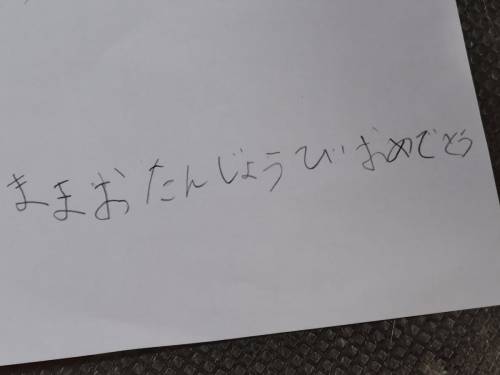 ままおたんじょうびおめでどう